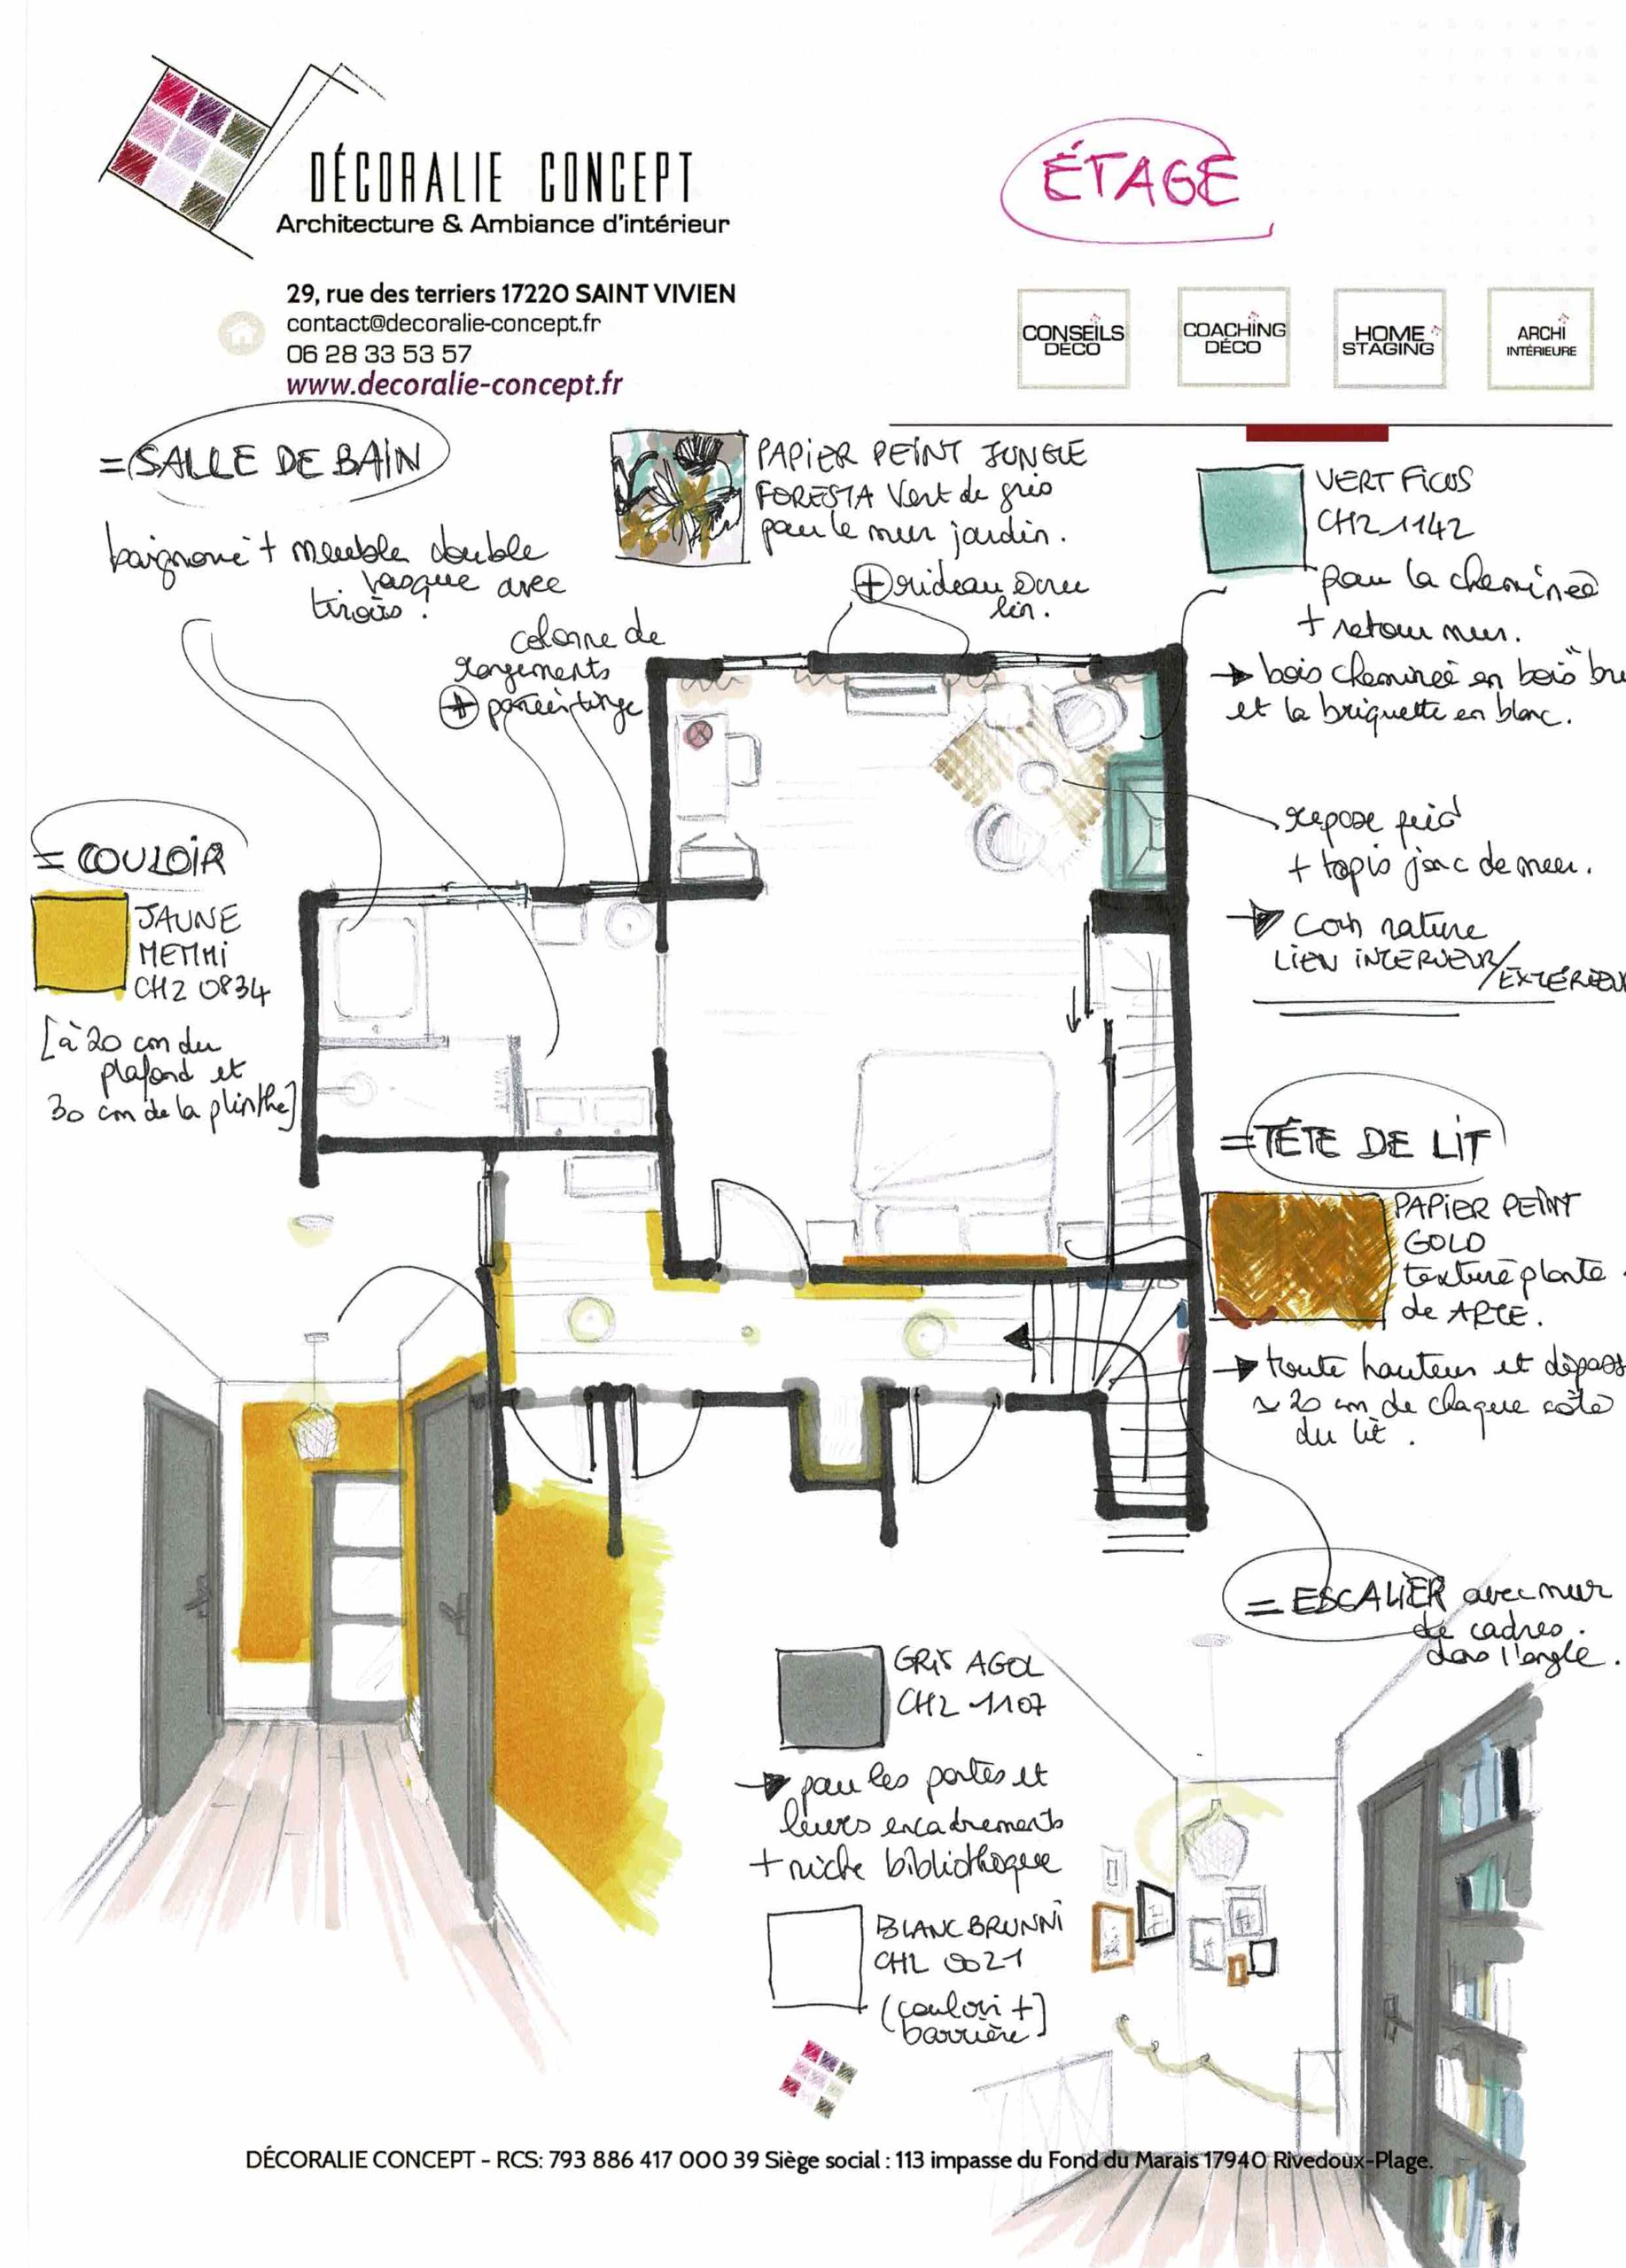 DÉCORALIE CONCEPT
Architecture & Ambiance d'intérieur
29, rue des terriers 17220 SAINT VIVIEN
contact@decoralie-concept.fr
06 28 33 53 57
www.decoralie-concept.fr
ÉTAGE
CONSEILS
DÉCO
COACHING
DÉCO
HOME
STAGING
ARCHI
INTÉRIEURE
= SALLE DE BAIN
baignoire + meuble double
vasque avec
tiroirs.
colonne de
rangements
+
PAPIER PEINT JUNGLE
FORESTA Vert de gris
pour le mur jardin.
+ rideau écru
lin.
VERT FICUS
CH2 1142
pour la cheminée
+ retour mur.
→ bois cheminée en bois
et la briquette en blanc.
repose pied
+ tapis jonc de mer.
→ Coin nature
LIEN INTERIEUR/
EXTÉRIEUR
= COULOIR
JAUNE
MEMMI
CH2 0834
[à 20 cm du
plafond et
30 cm de la plinthe]
= TÊTE DE LIT
PAPIER PEINT
GOLD
texturé plante
de ARTE.
→ toute hauteur et dépass
~ 20 cm de chaque côté
du lit.
= ESCALIER avec mur
de cadres
dans l'angle.
GRIS AGOL
CH2 1107
→ pour les portes et
leurs encadrements
+ niche bibliothèque
BLANC BRUNNI
CH2 0021
(couloir +
barrière)
DÉCORALIE CONCEPT - RCS: 793 886 417 000 39 Siège social : 113 impasse du Fond du Marais 17940 Rivedoux-Plage.